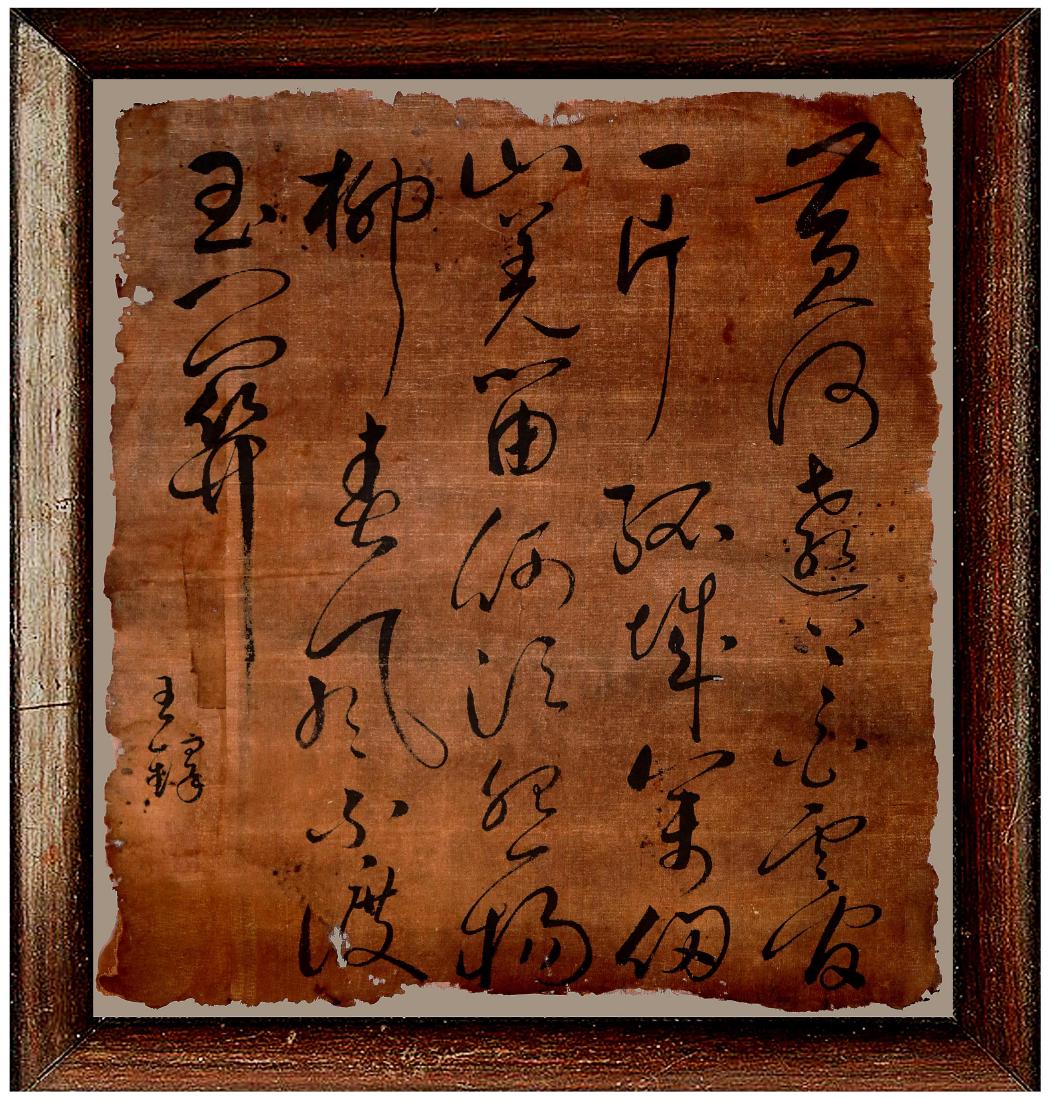 黃河遠上白雲間
一片孤城萬仞
山羌笛何須怨楊
柳春風不渡
玉門關
王鐸